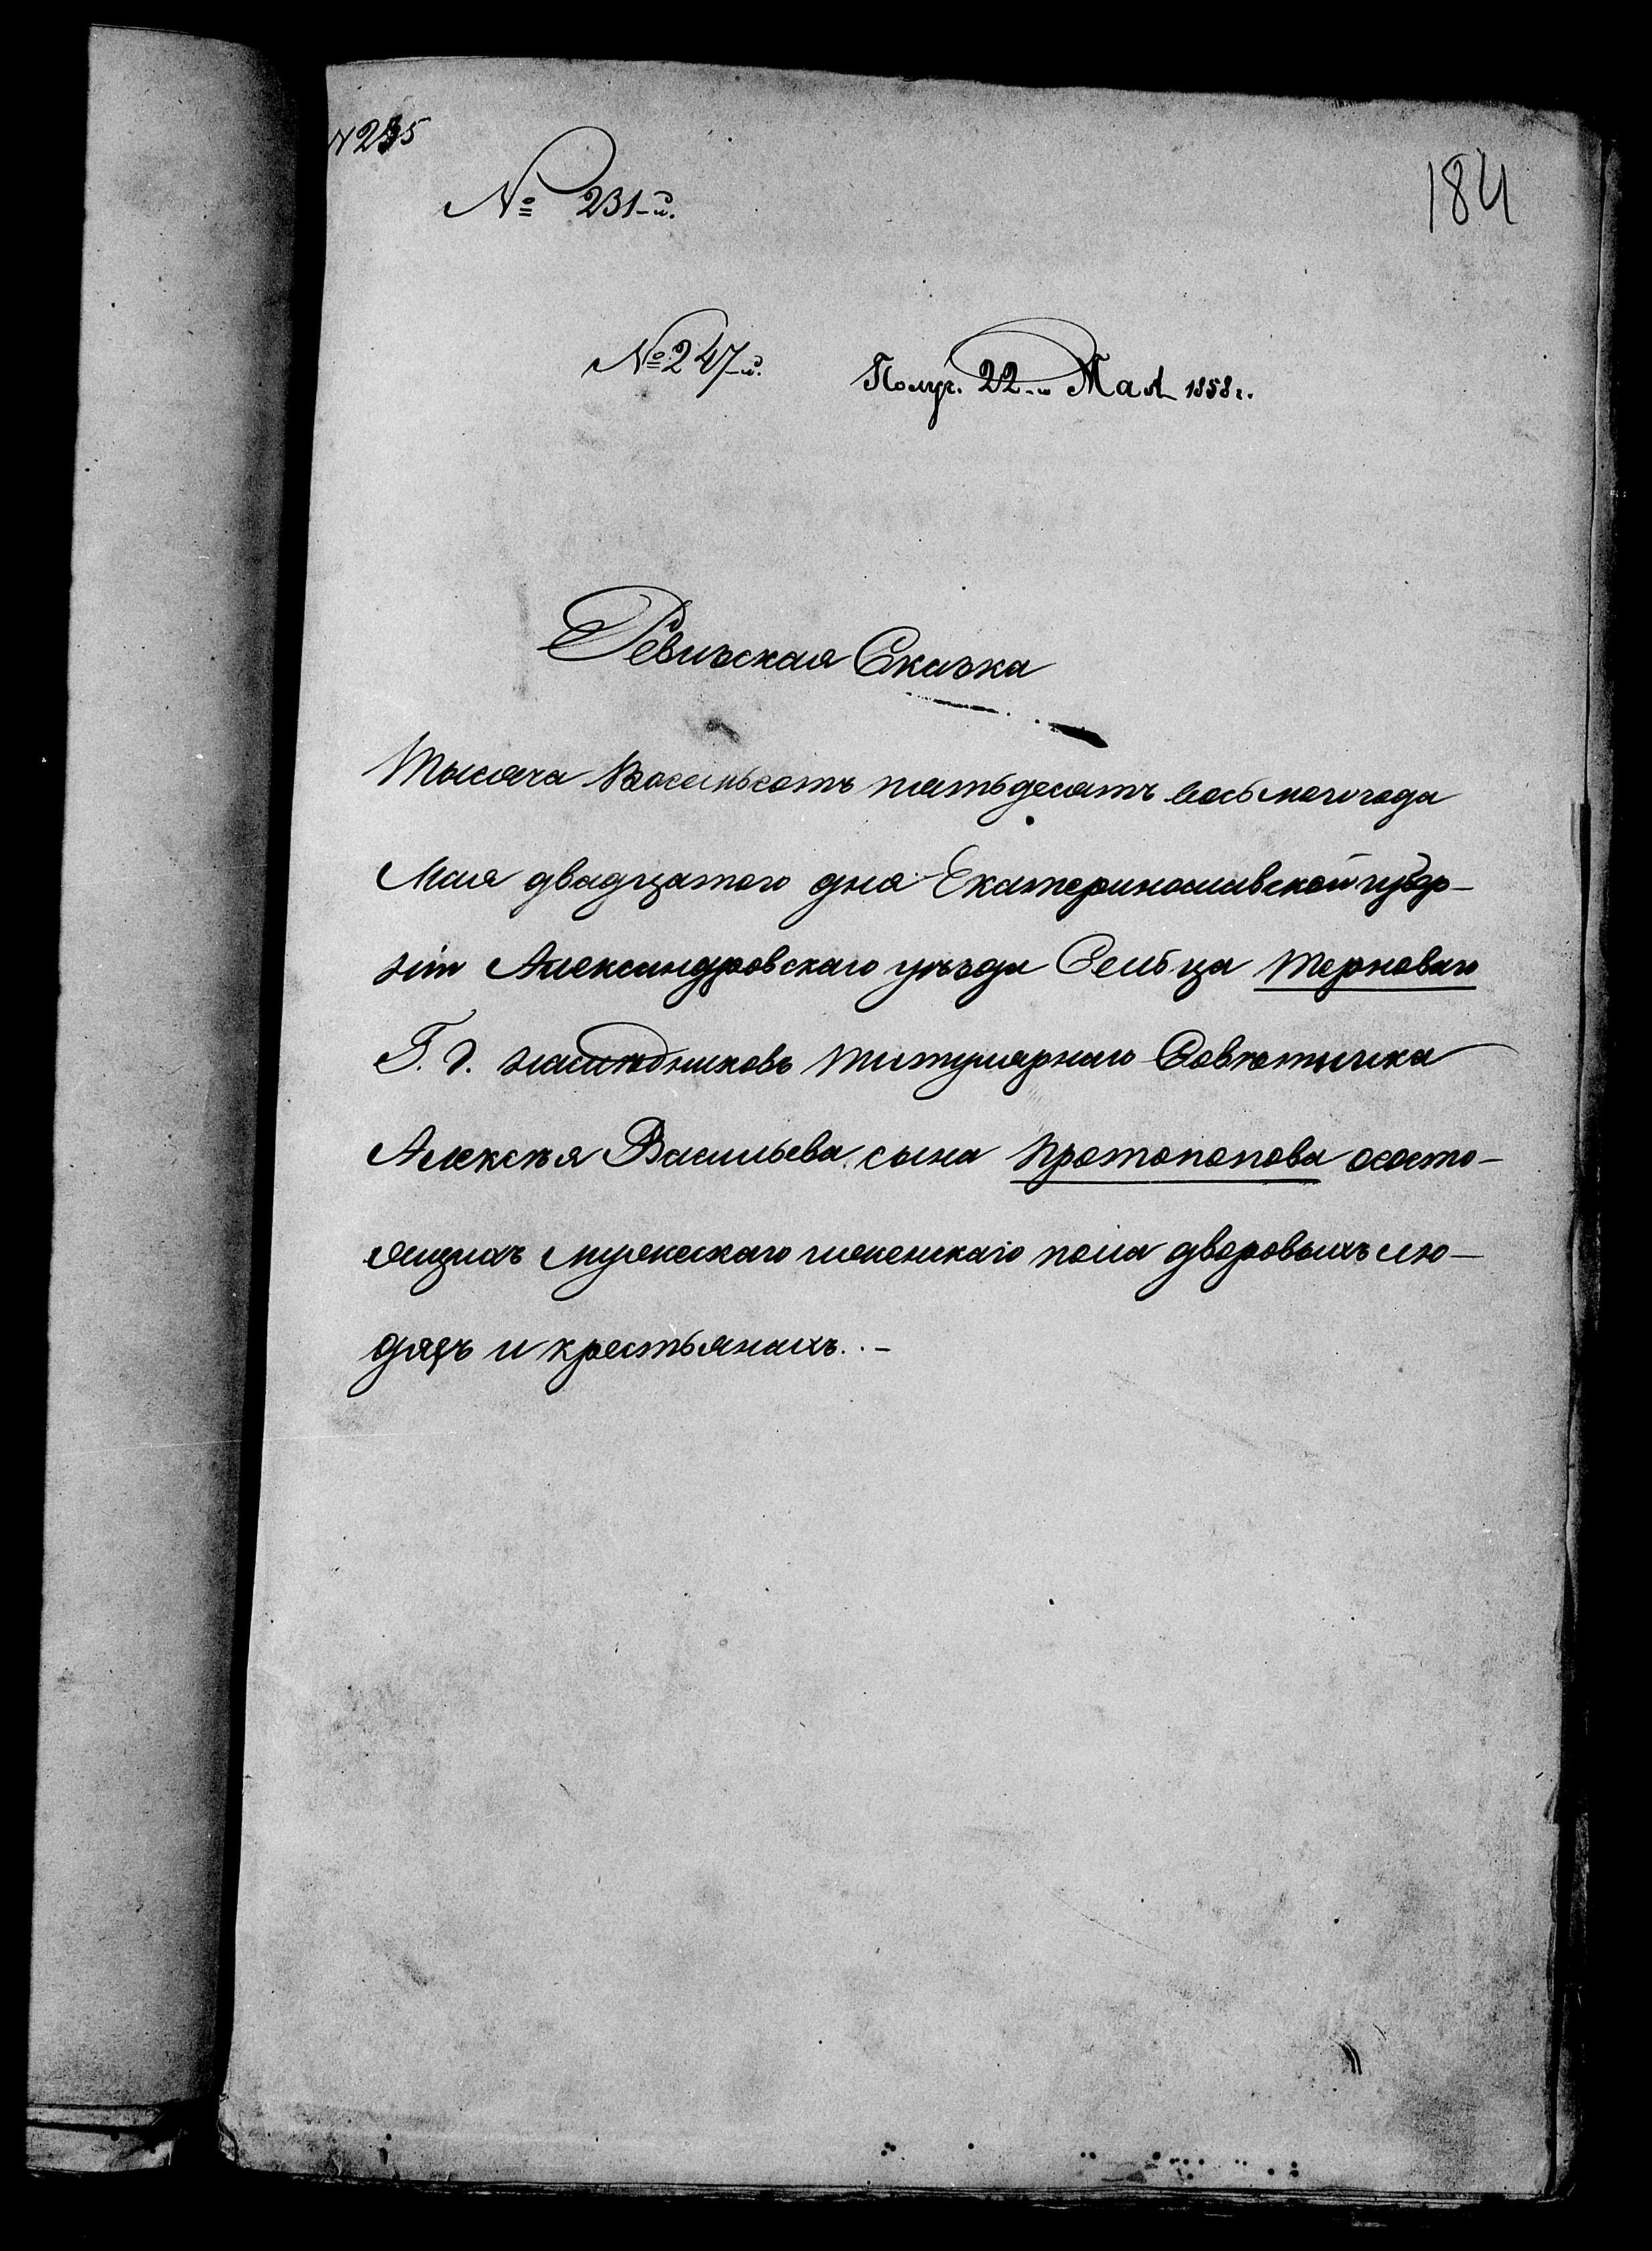 № 231-й.
184
№ 247-й. Получ. 22-и Мая 1858 г.
Ревизская Сказка
Тысяча Восемьсотъ пятьдесятъ восьмого года
Мая двадцатого дня Екатеринославской губер-
ніи Александровскаго уѣзда Сельца Терноваго
Г. д. наслѣдниковъ Титулярнаго Совѣтника
Алексѣя Васильева сына Протопопова ососто-
ящихъ мужескаго женскаго пола дворовыхъ лю-
дяхъ и крестьянахъ. -